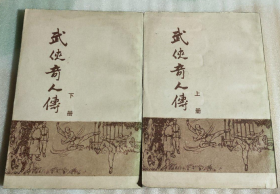 武侠奇人傳
下册
武侠奇人傳
上册